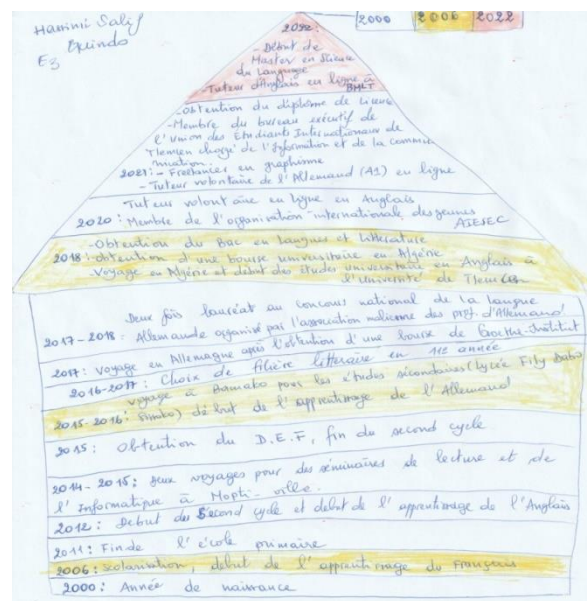 Hamimi Salif
Guindo
E3
2000 2006 2022
2022:
-Début de
Master en Science
du Langage
-Tuteur d'Anglais en ligne à
BMLT
-Obtention du diplôme de Licence
-Membre du bureau exécutif de
l'Union des Étudiants Internationaux de
Tlemcen chargé de l'Information et de la commu
nication.
2021: - Freelancer en graphisme
- Tuteur volontaire de l'Allemand (A1) en ligne
Tuteur volontaire en ligne en Anglais
2020: Membre de l'organisation internationale des jeunes
AIESEC
-Obtention du Bac en Langues et Littérature
2018: -obtention d'une bourse universitaire en Algérie
-Voyage en Algérie et début des études universitaire en Anglais à
l'Université de Tlemcen
Deux fois lauréat au concours national de la langue
2017-2018: Allemande organisé par l'association malienne des prof d'Allemand
2017: Voyage en Allemagne après l'obtention d'une bourse de Goethe-Institut
2016-2017: Choix de filière littéraire en 11e année
Voyage à Bamako pour les études secondaires (Lycée Fily Dabo
2015-2016: Sissoko) début de l'apprentissage de l'Allemand
2015: Obtention du D.E.F, fin du second cycle
2014-2015: deux voyages pour des séminaires de lecture et de
l'Informatique à Mopti-ville.
2012: Début du second cycle et début de l'apprentissage de l'Anglais
2011: Fin de l'école primaire
2006: scolarisation, début de l'apprentissage du Français
2000: Année de naissance